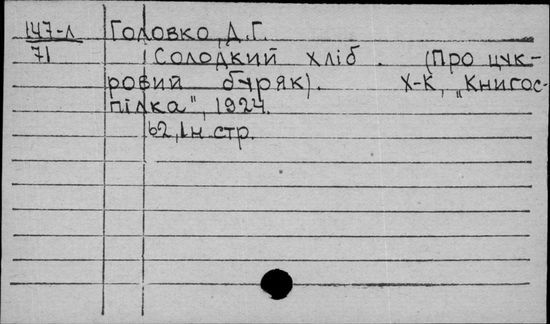 147-Л Головко, Д.Г.
71 Солодкий хліб. (Про цук-
ровий буряк). Х-К, „Книгос-
пілка", 1924.
62, 1н. стр.